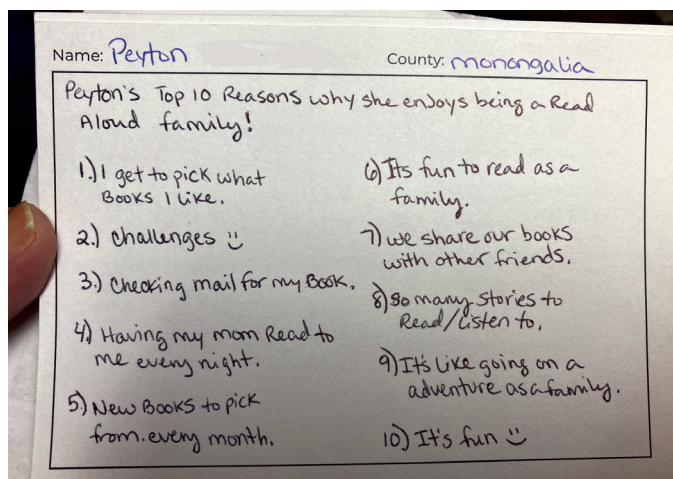 Name: Peyton
County: monongalia
Peyton's Top 10 Reasons why she enjoys being a Read
Aloud family!
1.) I get to pick what
Books I like.
2.) Challenges :)
3.) Checking mail for my Book.
4.) Having my mom Read to
me every night.
5.) New Books to pick
from. every month.
6) Its fun to read as a
family.
7) we share our books
with other friends.
8) so many stories to
Read/Listen to.
9) It's like going on a
adventure as a family.
10) It's fun :)